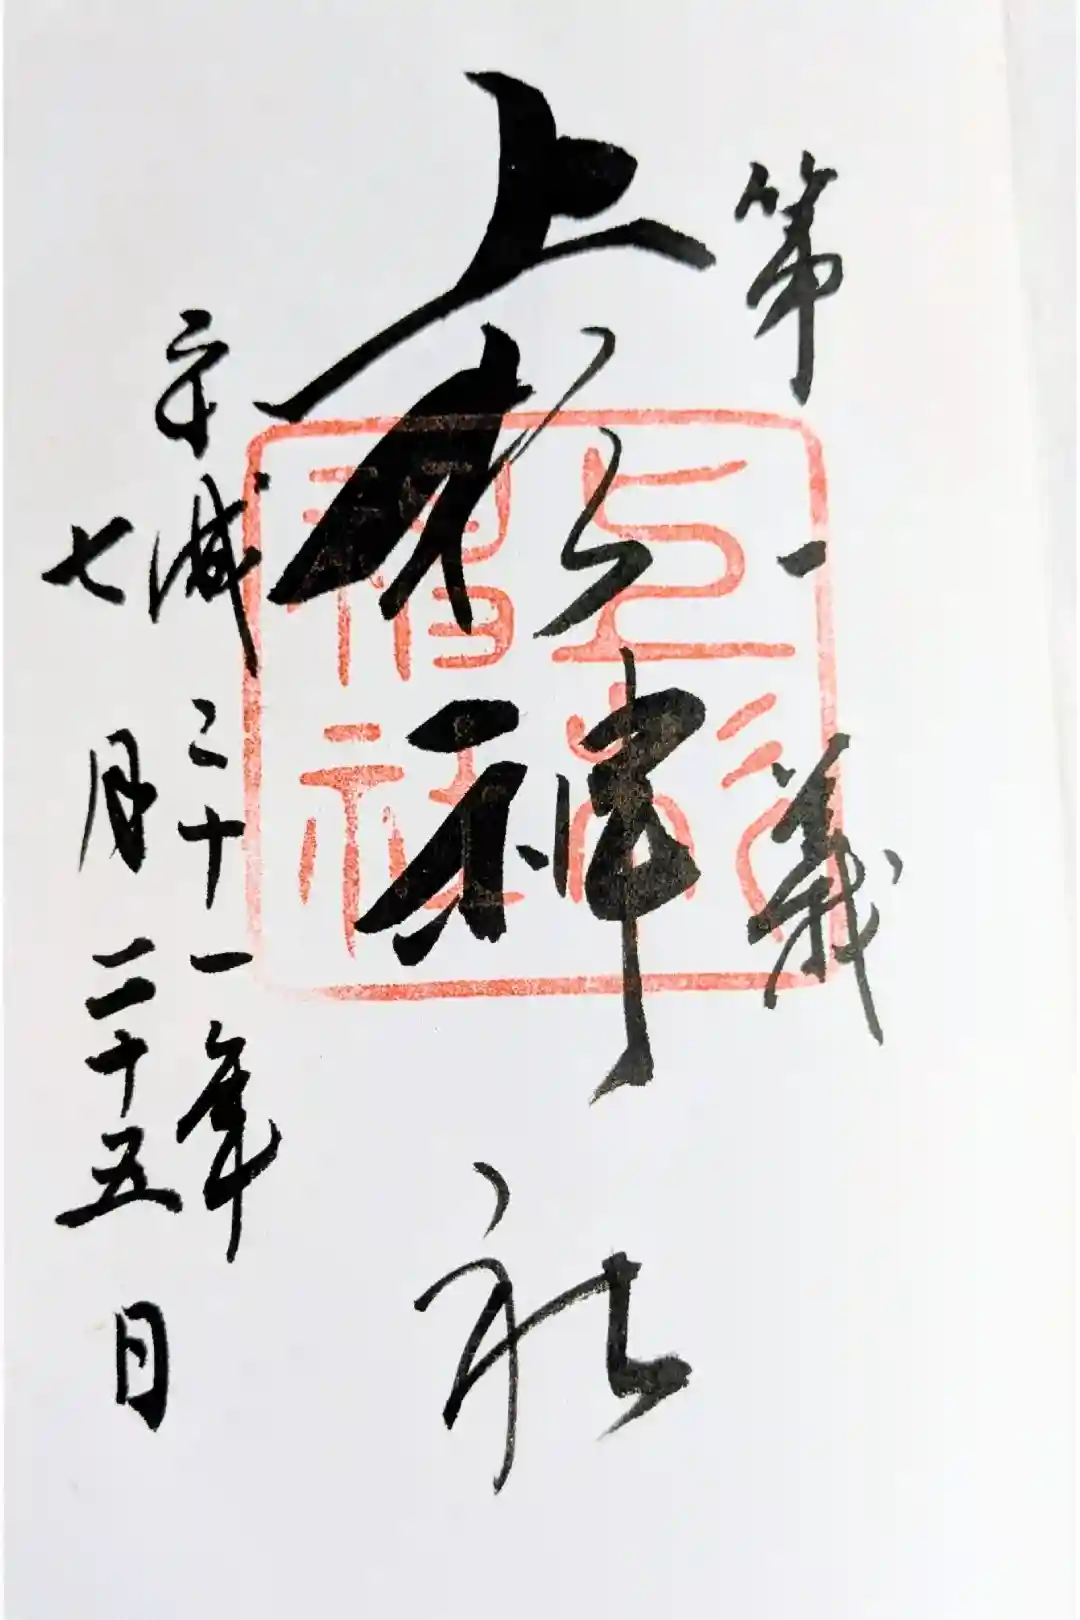 第一義
上杉神社
平成二十一年
七月二十五日
上杉神社